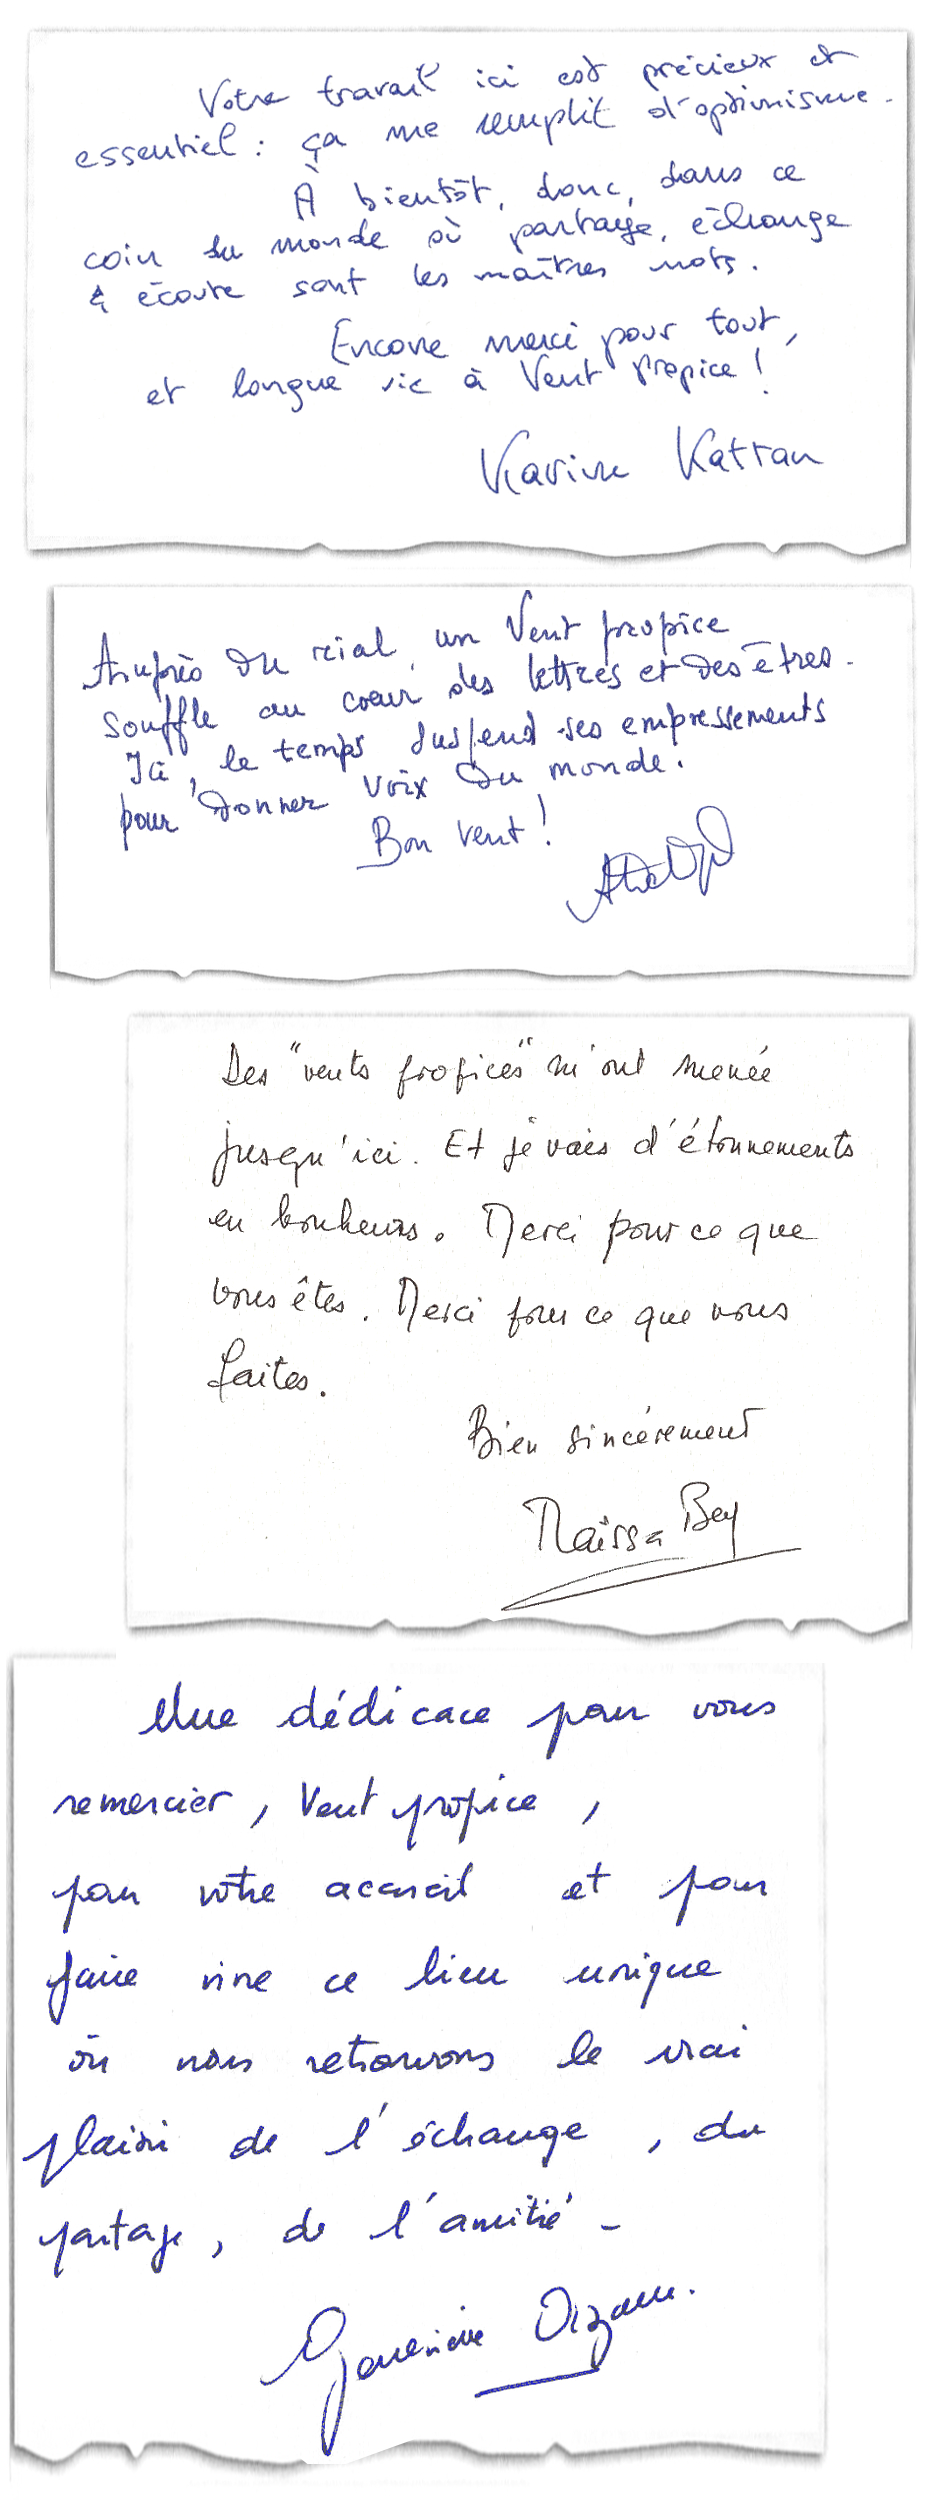 Votre travail ici est précieux et
essentiel : ça me remplit d'optimisme.
À bientôt, donc, dans ce
coin du monde où partage, échange
& écoute sont les maîtres mots.
Encore merci pour tout,
et longue vie à Vent propice !
Karine Kattan
Auprès du réial, un Vent propice
souffle au cœur des lettres et des êtres.
Ici, le temps suspend ses empressements
pour donner voix du monde.
Bon vent !
Des "vents propices" m'ont menée
jusqu'ici. Et je vais d'étonnements
en bonheurs. Merci pour ce que
vous êtes. Merci pour ce que vous
faites.
Bien sincèrement
Maïssa Bey
Une dédicace pour vous
remercier, Vent propice,
pour votre accueil et pour
faire vivre ce lieu unique
où nous retrouvons le vrai
plaisir de l'échange, du
partage, de l'amitié -
Geneviève